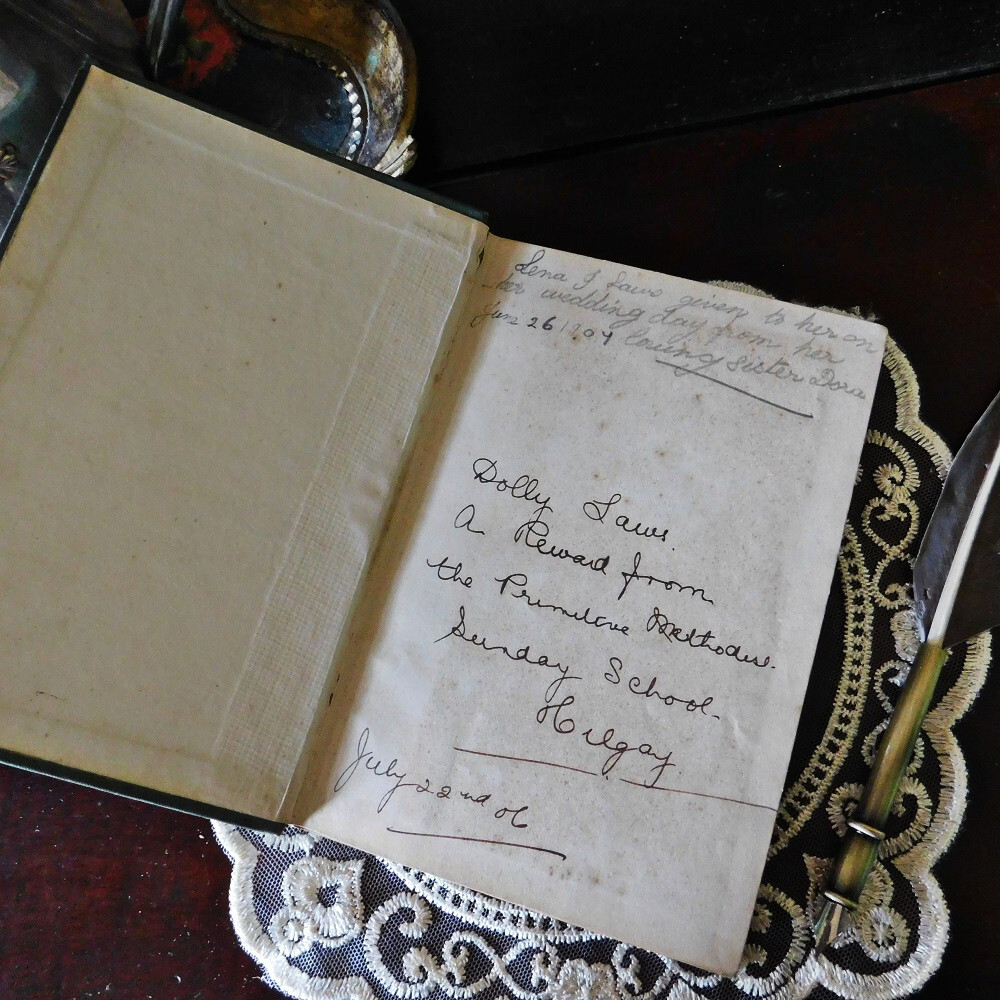 Lena J Laws given to her on
her wedding day from her
June 26/1907 loving sister Dora
Dolly Laws.
A Reward from
the Primitive Methodist.
Sunday School.
Hilgay.
July 22nd 06